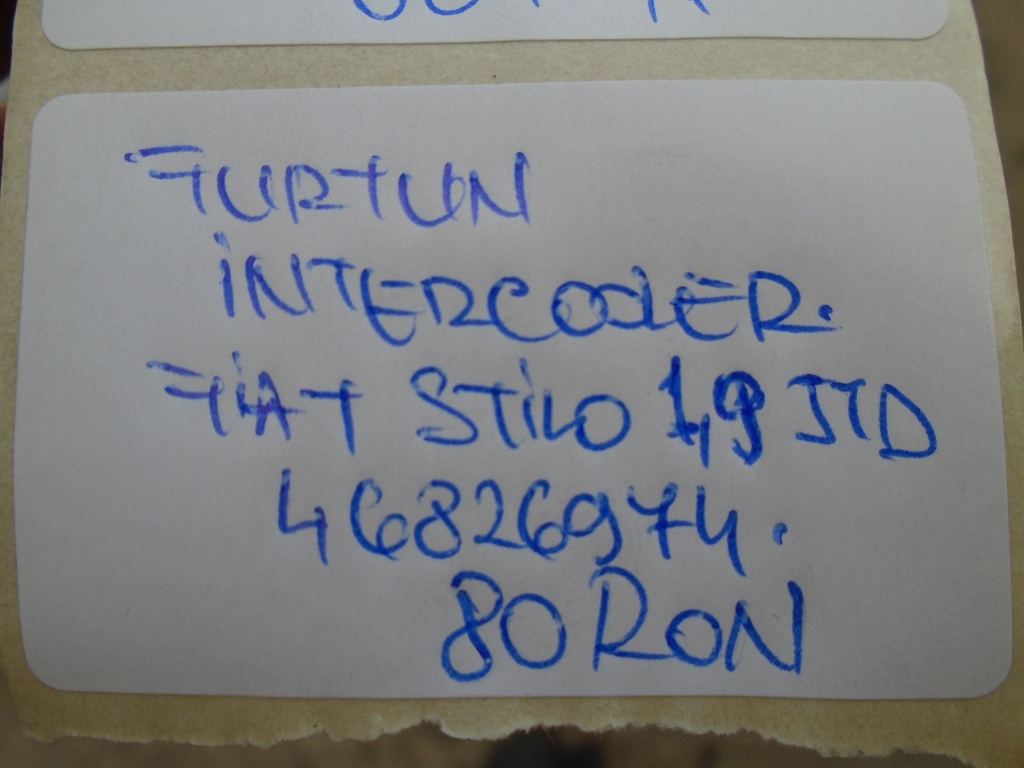 FURTUN
INTERCOOLER.
FIAT STILO 1,9 JTD
46826974.
80 RON